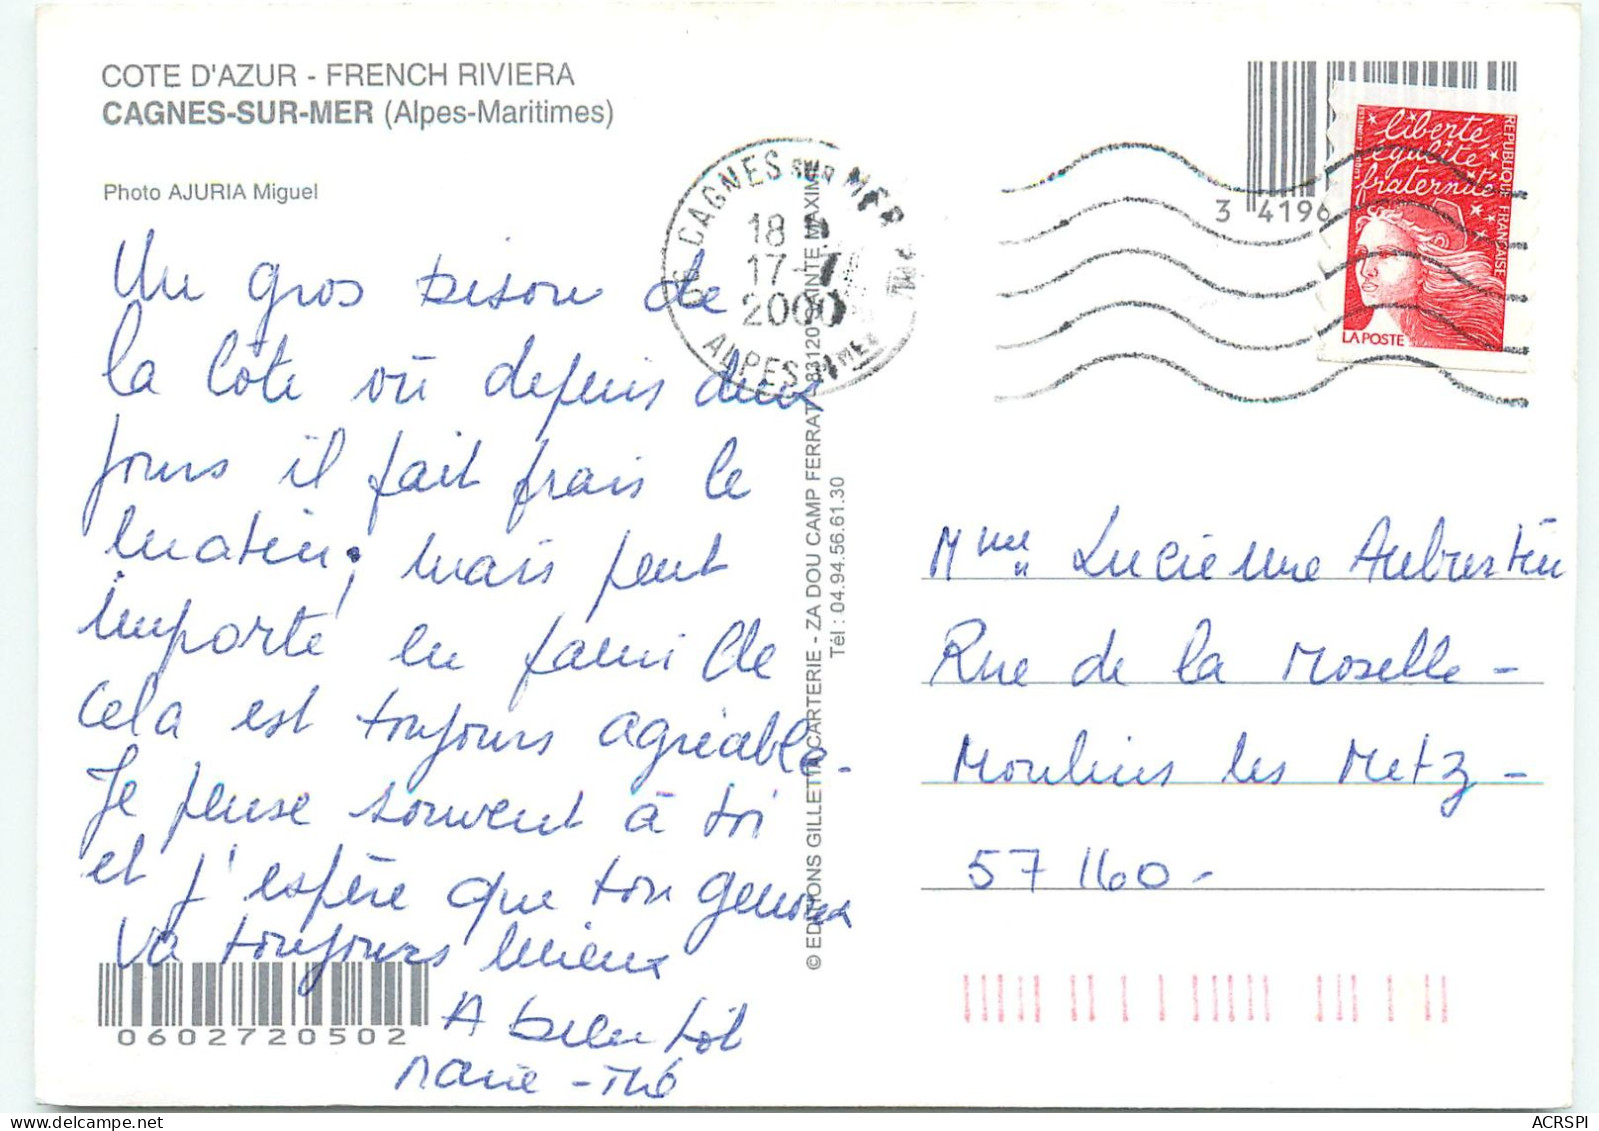 COTE D'AZUR - FRENCH RIVIERA
CAGNES-SUR-MER (Alpes-Maritimes)
Photo AJURIA Miguel
Un gros bison de
la Côte où depuis deux
jours il fait frais le
matin; mais peut
importe en famille
cela est toujours agréable-
Je pense souvent à toi
et j'espère que ton genoux
va toujours mieux
A bientôt
Marie-Thé
0602720502
© EDITIONS GILLETTA CARTERIE - ZA DOU CAMP FERRAT - 83120 SAINTE MAXIME
Tél : 04.94.56.61.30
06 CAGNES SUR MER
18 H
17-7
2000
ALPES
3 4196
liberté
égalité
fraternité
REPUBLIQUE FRANÇAISE
LA POSTE
Mme Lucienne Aubrestin
Rue de la Moselle-
Moulins les Metz-
57160-
ACRSPI